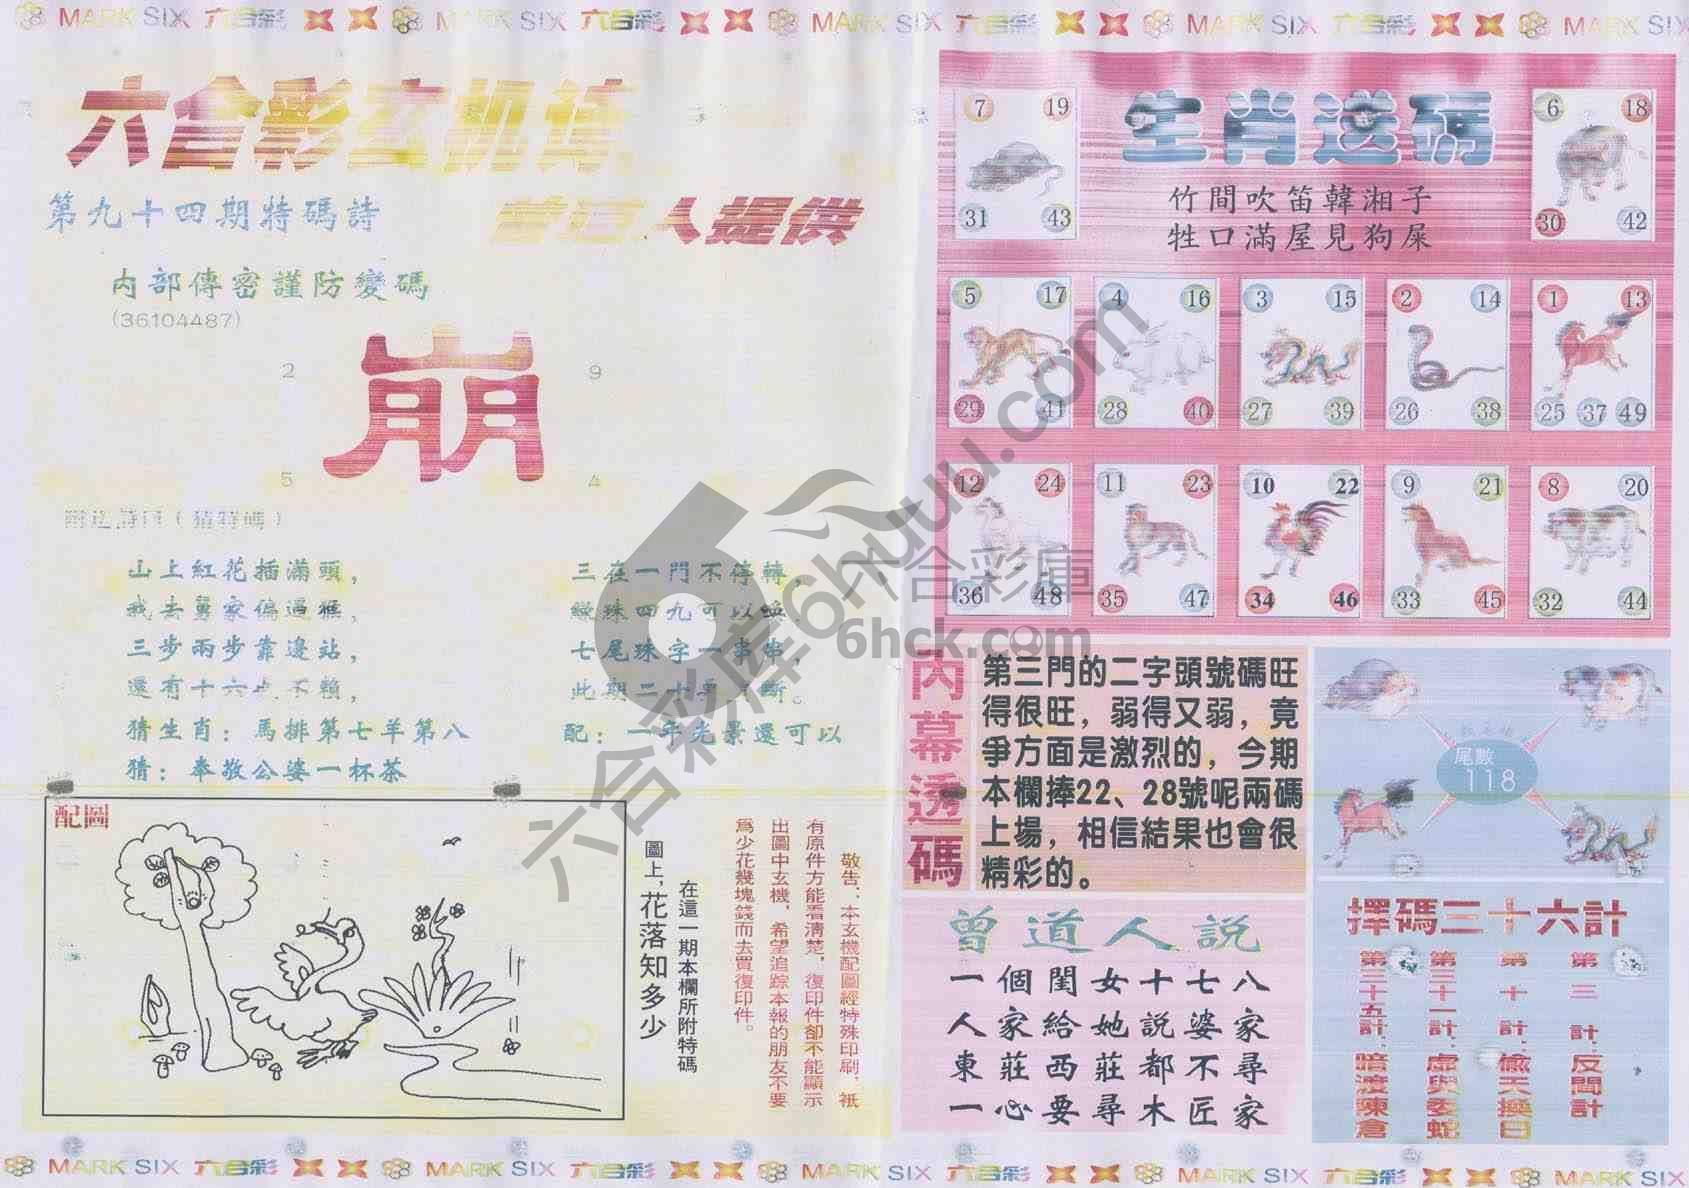 MARK SIX 六合彩 MARK SIX 六合彩 MARK SIX 六合彩 MARK SIX 六合彩 MARK SIX
六合彩玄机博
曾道人提供
第九十四期特碼詩
内部傳密謹防變碼
(36104487)
2 9
崩
5 4
(猜特碼)
山上紅花插滿頭,
我去舅家偏過
三步兩步靠邊站,
還有十六 不賴,
猜生肖：馬排第七羊第八
猜：奉敬公婆一杯茶
三在一門不停轉
珠四九可以
七尾珠字一串串,
此期二十 斷。
配：一年光景還可以
配圖
在這一期本欄所附特碼
圖上,花落知多少
敬告：本玄機配圖經特殊印刷，祇
有原件方能看清楚，復印件卻不能顯示
出圖中玄機，希望追踪本報的朋友不要
爲少花幾塊錢而去買復印件。
生肖送碼
竹間吹笛韓湘子
牲口滿屋見狗屎
7 19
31 43
6 18
30 42
5 17
29 41
4 16
28 40
3 15
27 39
2 14
26 38
1 13
25 37 49
12 24
36 48
11 23
35 47
10 22
34 46
9 21
33 45
8 20
32 44
内幕透碼
第三門的二字頭號碼旺
得很旺，弱得又弱，竟
爭方面是激烈的，今期
本欄捧22、28號呢兩碼
上場，相信結果也會很
精彩的。
尾數
118
曾道人説
一個閨女十七八
人家給她説婆家
東莊西莊都不尋
一心要尋木匠家
擇碼三十六計
第三計：反間計
第十計：偷天換日
第三十一計：虛與委蛇
第三十五計：暗渡陳倉
六合彩库6huuu.com
六合彩庫
6hck.com
MARK SIX 六合彩 MARK SIX 六合彩 MARK SIX 六合彩 MARK SIX 六合彩 MARK SIX